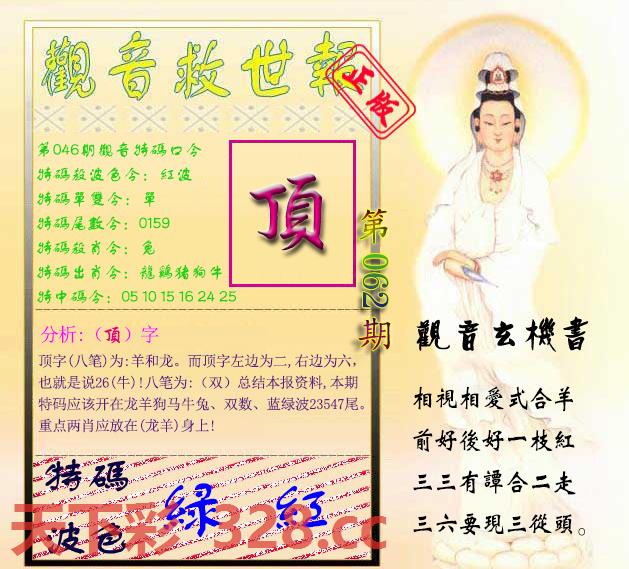 觀音救世報
正版
第046期觀音特碼口令
特碼殺波色令：紅波
特碼單雙令：單
特碼尾數令：0159
特碼殺肖令：兔
特碼出肖令：龍鷄猪狗牛
特中碼令：05 10 15 16 24 25
頂
第062期
分析:（頂）字
顶字(八笔)为:羊和龙。而顶字左边为二,右边为六，
也就是说26(牛)!八笔为:（双）总结本报资料,本期
特码应该开在龙羊狗马牛兔、双数、蓝绿波23547尾。
重点两肖应放在(龙羊)身上!
特碼
波色
绿 紅
天下彩 328.cc
觀音玄機書
相視相愛式合羊
前好後好一枝紅
三三有譚合二走
三六要現三從頭。